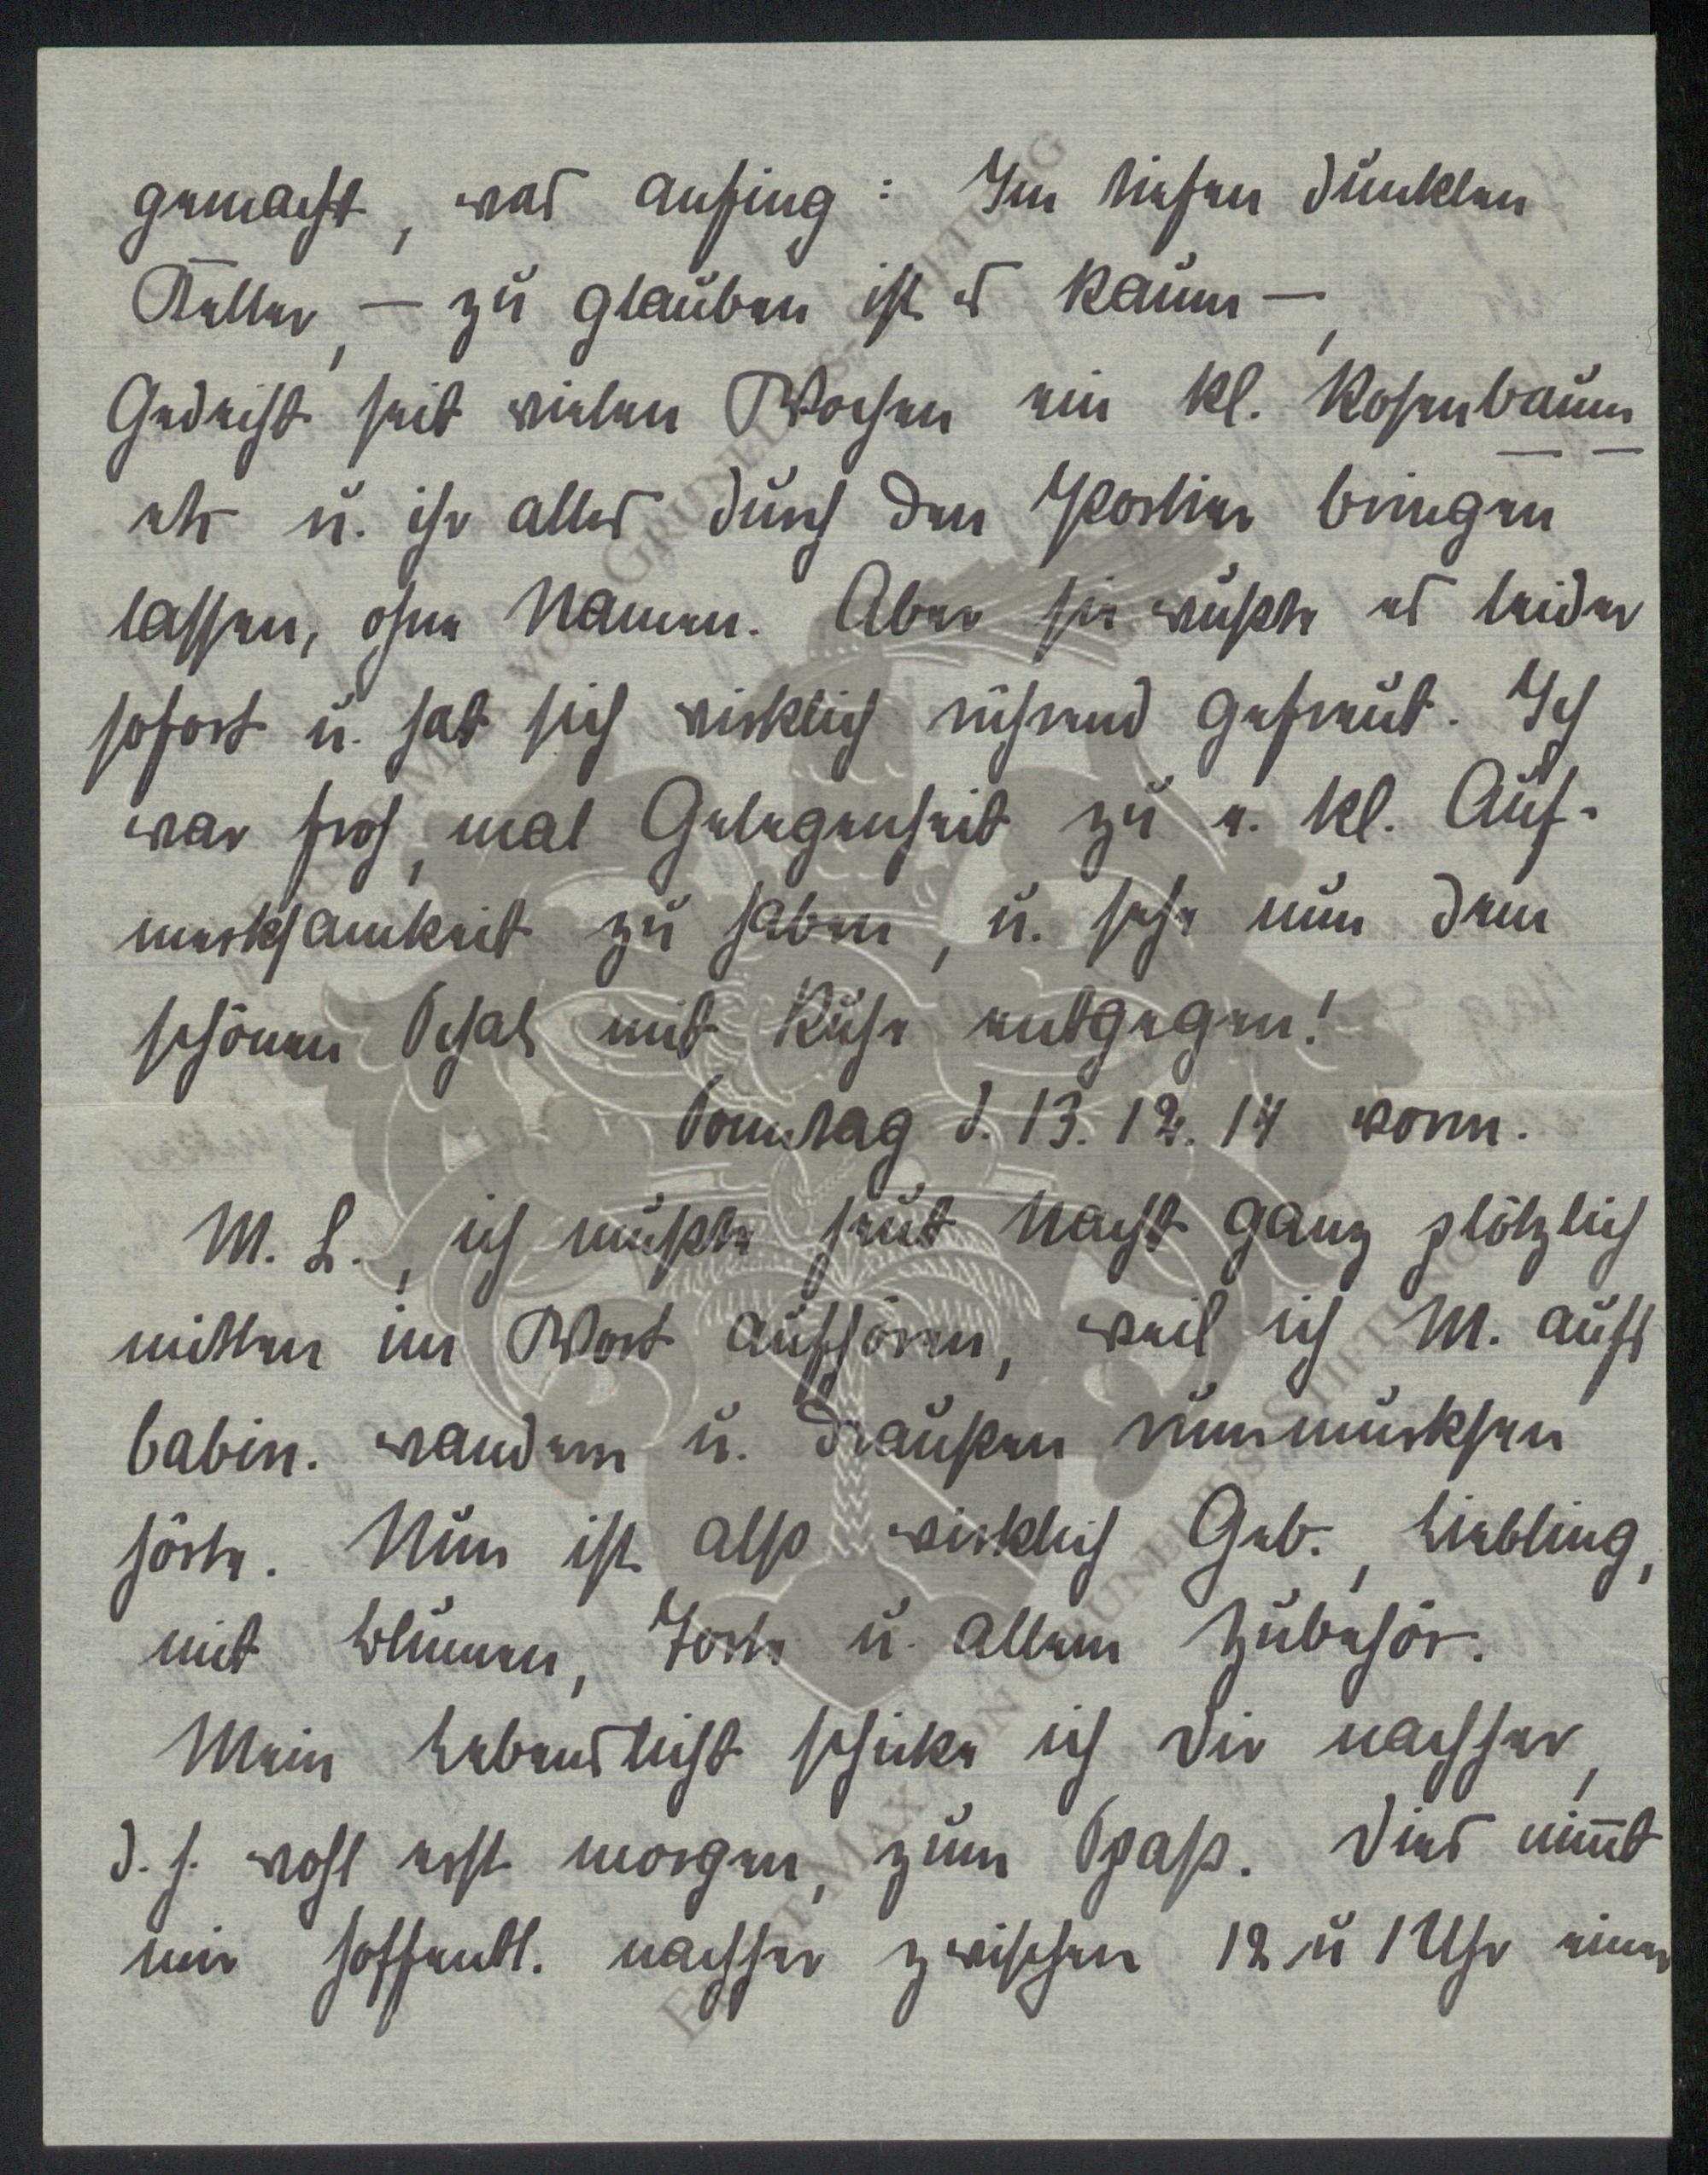 gemacht, was anfing: Im tiefen dunklen
Keller, — zu glauben ist es kaum —,
Gedeiht seit vielen Wochen ein kl. Rosenbaum
etc u. ihr alles durch den Portier bringen
lassen, ohne Namen. Aber sie wußte es leider
sofort u. hat sich wirklich rührend gefreut. Ich
war froh, mal Gelegenheit zu e. kl. Auf-
merksamkeit zu haben, u. sehe nun dem
schönen Schal mit Ruhe entgegen!
Sonntag d. 13. 12. 14 vorm.
M. L., ich mußte heut Nacht ganz plötzlich
mitten im Wort aufhören, weil ich M. aufs
wandern u. draußen rummurksen
hörte. Nun ist also wirklich Geb., Liebling,
mit Blumen, Torte u. allem Zubehör.
Mein Lebenslicht schicke ich Dir nachher,
d. h. wohl erst morgen, zum Spaß. Dies nimmt
mir hoffentl. nachher zwischen 12 u 1 Uhr einer
ERNST MAX VON GRUNELIUS-STIFTUNG
ERNST MAX VON GRUNELIUS-STIFTUNG